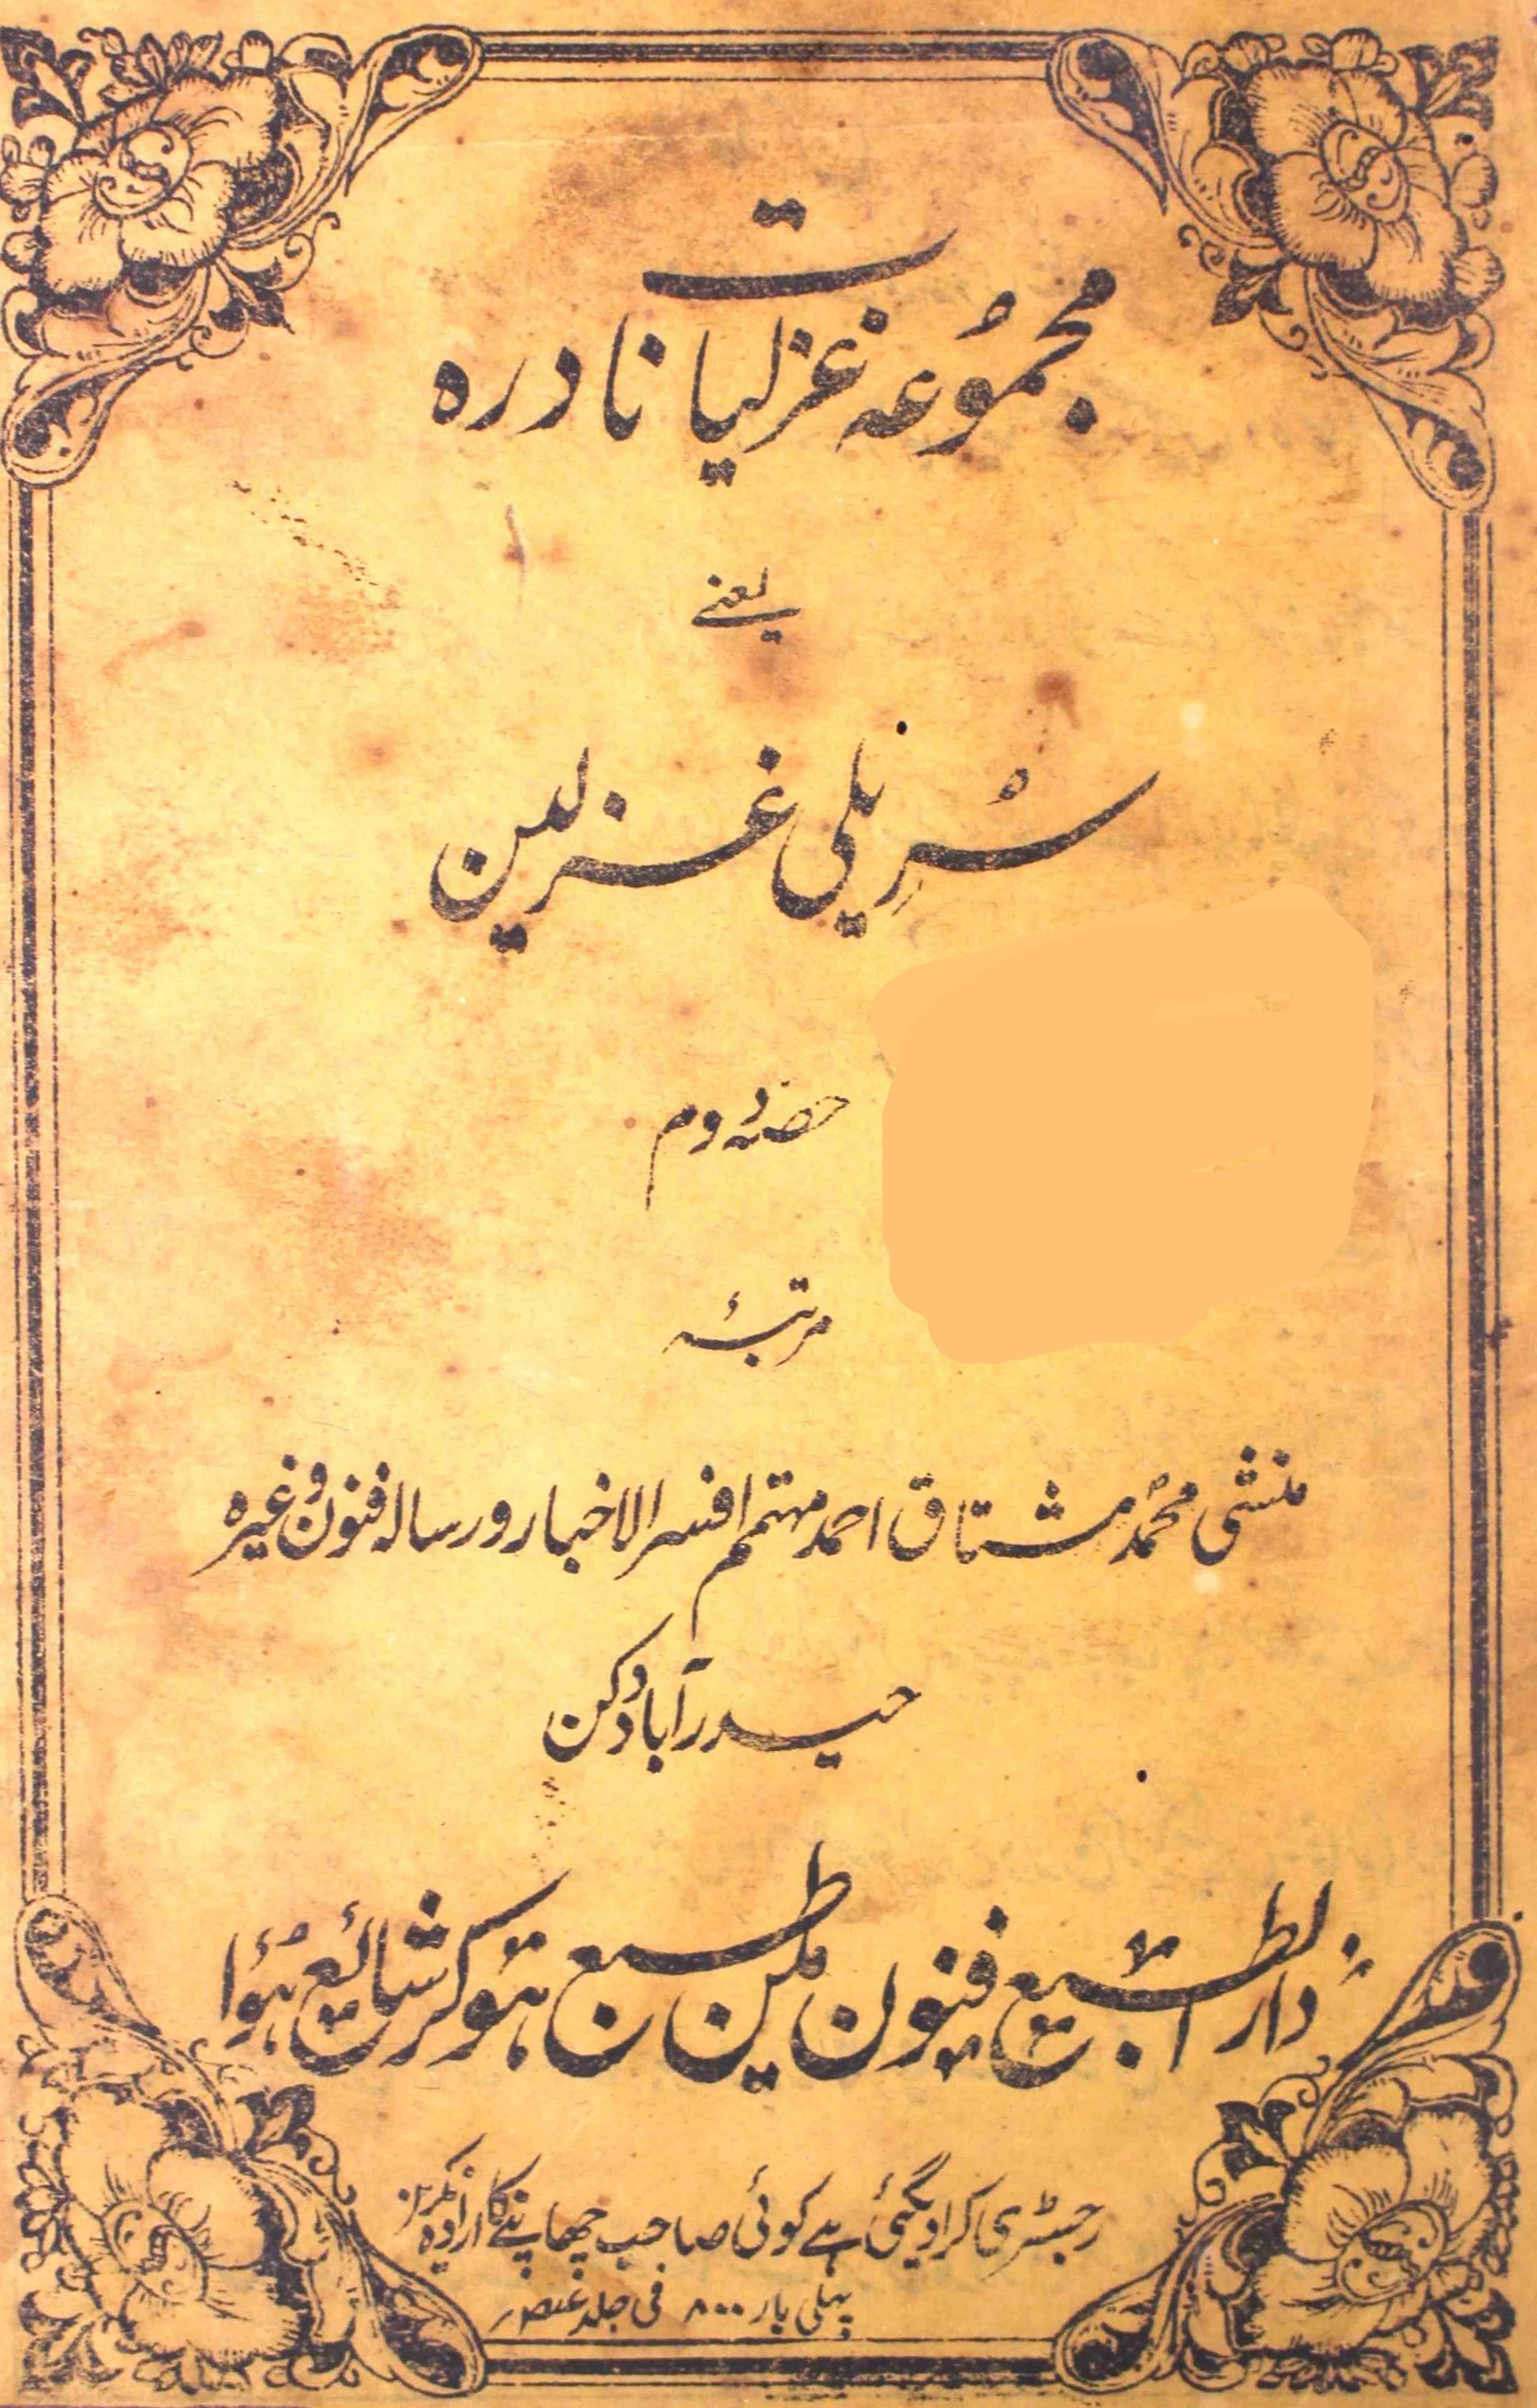 مجموعہ غزلیات نادرہ
یعنے
سُریلی غزلین
حصۂ دوم
مرتبۂ
منشی محمد مشتاق احمد مہتمم افسر الاخبار و رسالہ فنون وغیرہ
حیدرآباد دکن
دار الطبع فنون مین طبع ہوکر شائع ہُوا
رجسٹری کرادیگئی ہے کوئی صاحب چھاپنے کا ارادہ نکرین
پہلی بار ۸۰۰ فی جلد